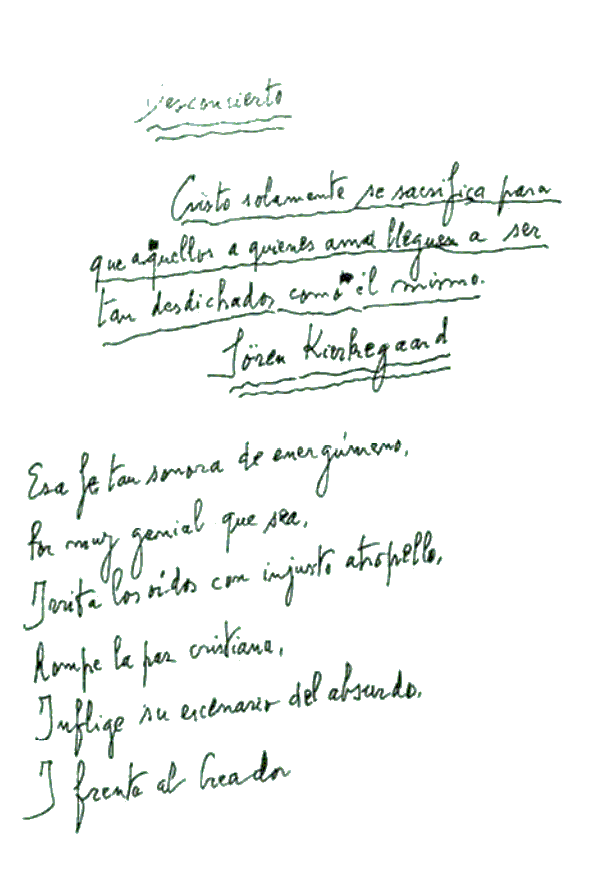 Desconcierto
Cristo solamente se sacrifica para
que aquellos a quienes ama lleguen a ser
tan desdichados como él mismo.
Sören Kierkegaard
Esa fe tan sonora de energúmeno,
Por muy genial que sea,
Irrita los oídos con injusto atropello,
Rompe la paz cristiana,
Inflige su escenario del absurdo,
Y frente al Creador